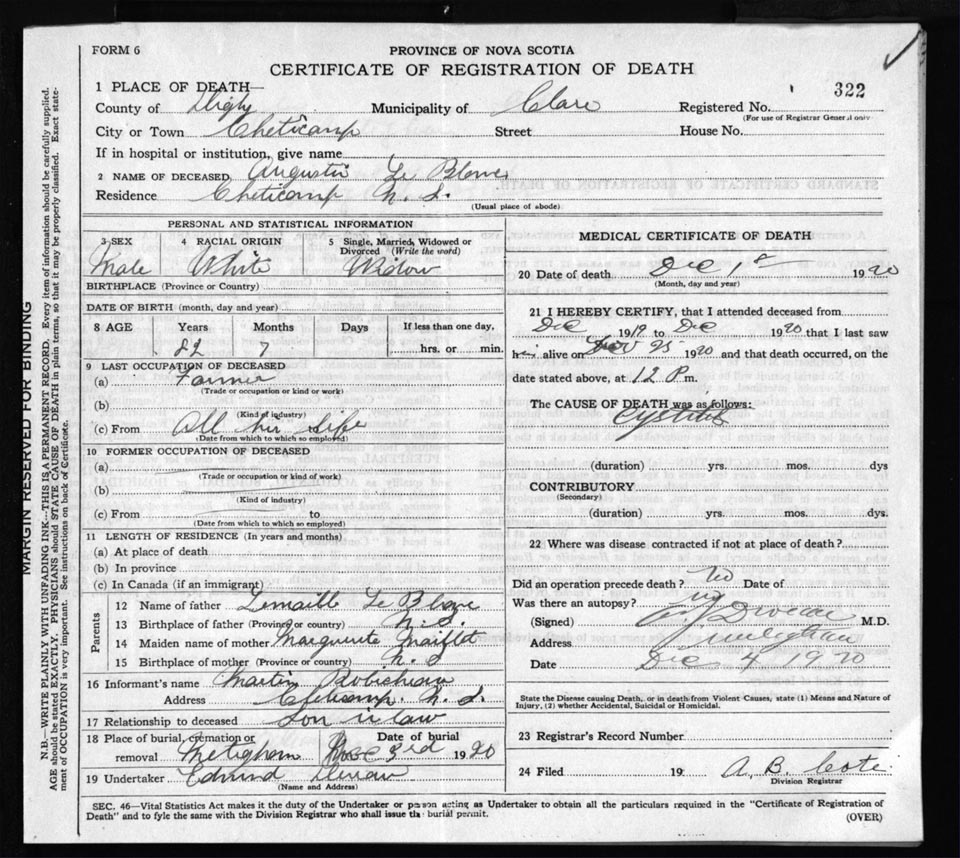 FORM 6
PROVINCE OF NOVA SCOTIA
CERTIFICATE OF REGISTRATION OF DEATH
322
1 PLACE OF DEATH—
County of Digby Municipality of Clare Registered No.
(For use of Registrar General only
City or Town Cheticamp Street House No.
If in hospital or institution, give name
2 NAME OF DECEASED Augustin Le Blanc
Residence Cheticamp N. S.
(Usual place of abode)
PERSONAL AND STATISTICAL INFORMATION
3 SEX 4 RACIAL ORIGIN 5 Single, Married, Widowed or Divorced (Write the word)
Male White Widow
BIRTHPLACE (Province or Country)
DATE OF BIRTH (month, day and year)
8 AGE Years Months Days If less than one day,
82 7 hrs. or min.
9 LAST OCCUPATION OF DECEASED
(a) Farmer
(Trade or occupation or kind or work)
(b)
(Kind of industry)
(c) From All his life
(Date from which to which so employed)
10 FORMER OCCUPATION OF DECEASED
(a)
(Trade or occupation or kind of work)
(b)
(Kind of industry)
(c) From to
(Date from which to which so employed)
11 LENGTH OF RESIDENCE (In years and months)
(a) At place of death
(b) In province
(c) In Canada (if an immigrant)
Parents
12 Name of father Le Blanc
13 Birthplace of father (Province or country) N. S.
14 Maiden name of mother Marguerite
15 Birthplace of mother (Province or country) N. S
16 Informant's name Martin Robicheau
Address Cheticamp N. S.
17 Relationship to deceased Son in law
18 Place of burial, cremation or removal Meteghan Date of burial Dec 3rd 1920
19 Undertaker Edmund
(Name and Address)
MEDICAL CERTIFICATE OF DEATH
20 Date of death Dec 1st 1920
(Month, day and year)
21 I HEREBY CERTIFY, that I attended deceased from
Dec 1919 to Dec 1920 that I last saw
him alive on Nov 25 1920 and that death occurred, on the
date stated above, at 12 P m.
The CAUSE OF DEATH was as follows:
Cystitis
(duration) yrs. mos. dys
CONTRIBUTORY
(Secondary)
(duration) yrs. mos. dys.
22 Where was disease contracted if not at place of death?
Did an operation precede death? No Date of
Was there an autopsy? no
(Signed) M.D.
Address Meteghan
Date Dec 4 1920
State the Disease causing Death, or in death from Violent Causes, state (1) Means and Nature of
Injury, (2) whether Accidental, Suicidal or Homicidal.
23 Registrar's Record Number
24 Filed 19 A. B. Cote
Division Registrar
SEC. 46—Vital Statistics Act makes it the duty of the Undertaker or person acting as Undertaker to obtain all the particulars required in the "Certificate of Registration of
Death" and to fyle the same with the Division Registrar who shall issue the burial permit.
(OVER)
MARGIN RESERVED FOR BINDING
N.B.—WRITE PLAINLY WITH UNFADING INK—THIS IS A PERMANENT RECORD. Every item of information should be carefully supplied.
AGE should be stated EXACTLY. PHYSICIANS should STATE CAUSE OF DEATH in plain terms, so that it may be properly classified. Exact state-
ment of OCCUPATION is very important. See instructions on back of Certificate.